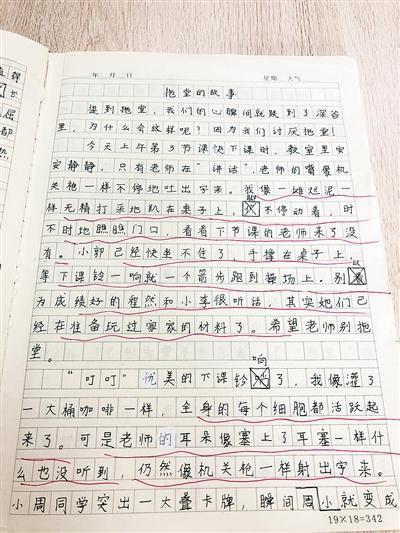 年 月 日 星期 天气
拖堂的故事
提到拖堂，我们的心瞬间就跌到了深谷
里，为什么会这样呢？因为我们讨厌拖堂！
今天上午第3节课快下课时，教室里安
安静静，只有老师在“讲话”，老师的嘴像机
关枪一样不停地吐出字来。我像一摊烂泥一
样无精打采地趴在桌子上，脚不停动着，时
不时地瞧瞧门口，看看下节课的老师来了没
有。小郭已经快坐不住了，手撑在桌子上，
等下课铃一响就一个箭步跑到操场上。别以
为成绩好的程然和小李很听话，其实她们已
经在准备玩过家家的材料了。希望老师别拖
堂。
“叮叮”优美的下课铃响了，我像灌了
一大桶咖啡一样，全身的每个细胞都活跃起
来了。可是老师的耳朵像塞上了耳塞一样什
么也没听到，仍然像机关枪一样射出字来。
小周同学突出一大叠卡牌，瞬间周小就变成
19×18=342
课
屈
都
热